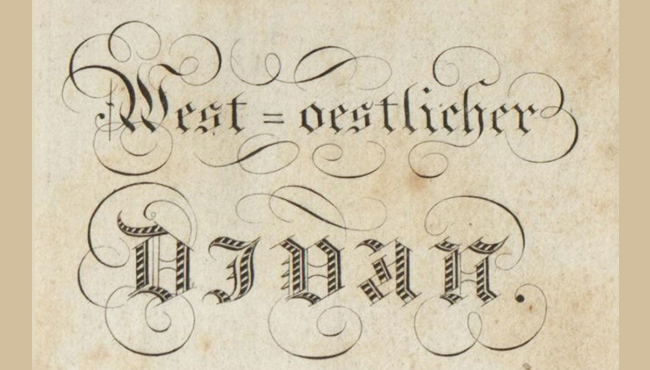 West=oestlicher
DIVAN.